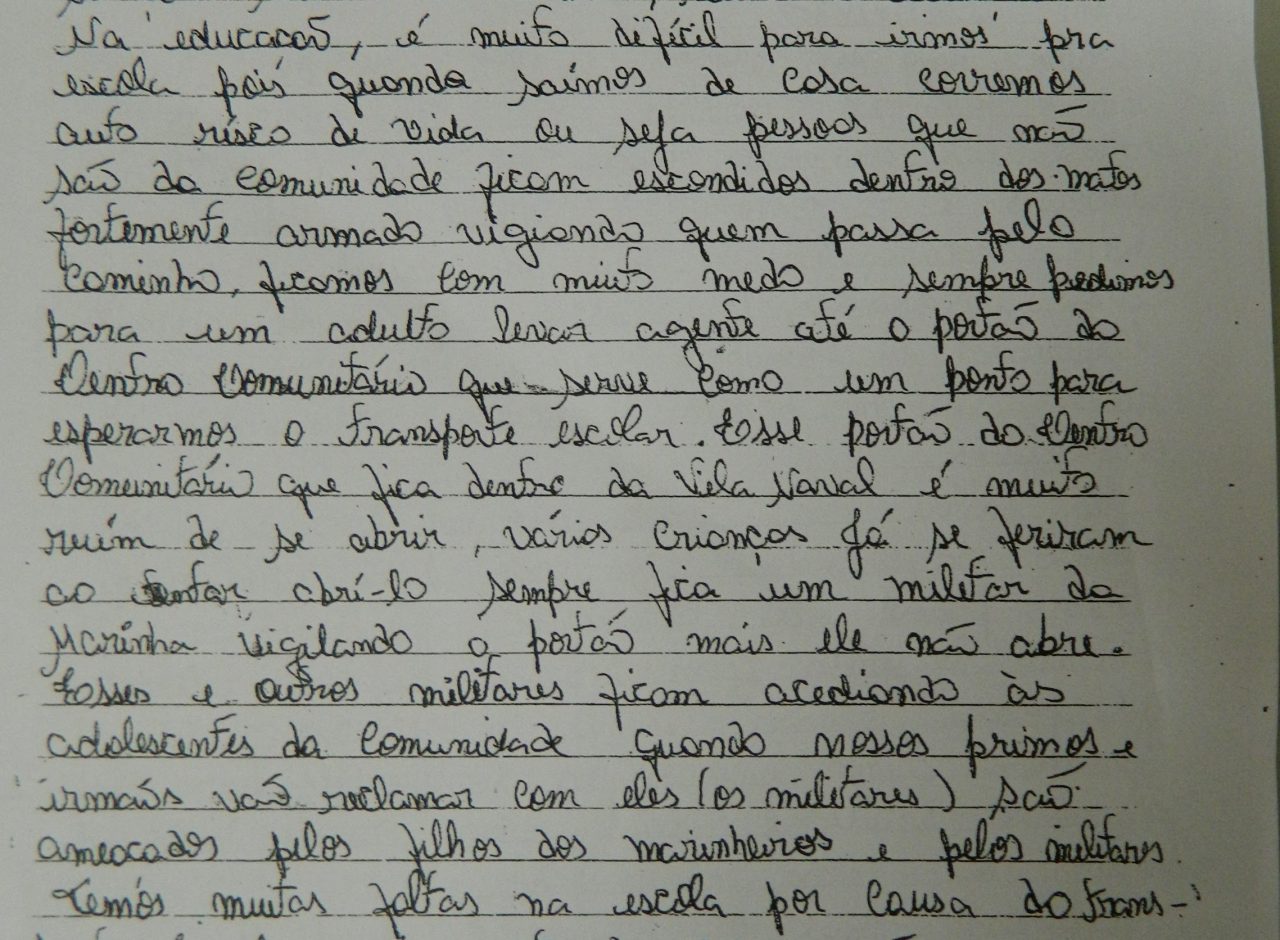 Na educacaõ, é muito difícil para irmos pra
escola pois quando saímos de casa corremos
auto risco de vida ou seja pessoas que não
são da comunidade ficam escondidos dentro dos matos
fortemente armado vigiando quem passa pelo
caminho, ficamos com muito medo e sempre pedimos
para um adulto levar agente até o portão do
Centro Comunitário que serve como um ponto para
esperarmos o transporte escolar. Esse portão do Centro
Comunitário que fica dentro da Vila Naval é muito
ruím de se abrir, várias crianças já se feriram
ao tentar abrí-lo sempre fica um militar da
Marinha vigilando o portão mais ele não abre.
Esses e outros militares ficam acediando às
adolescentes da comunidade quando nossos primos e
irmaõs vão reclamar com eles (os militares) são
ameacados pelos filhos dos marinheiros e pelos militares.
Temos muitas faltas na escola por causa do trans-